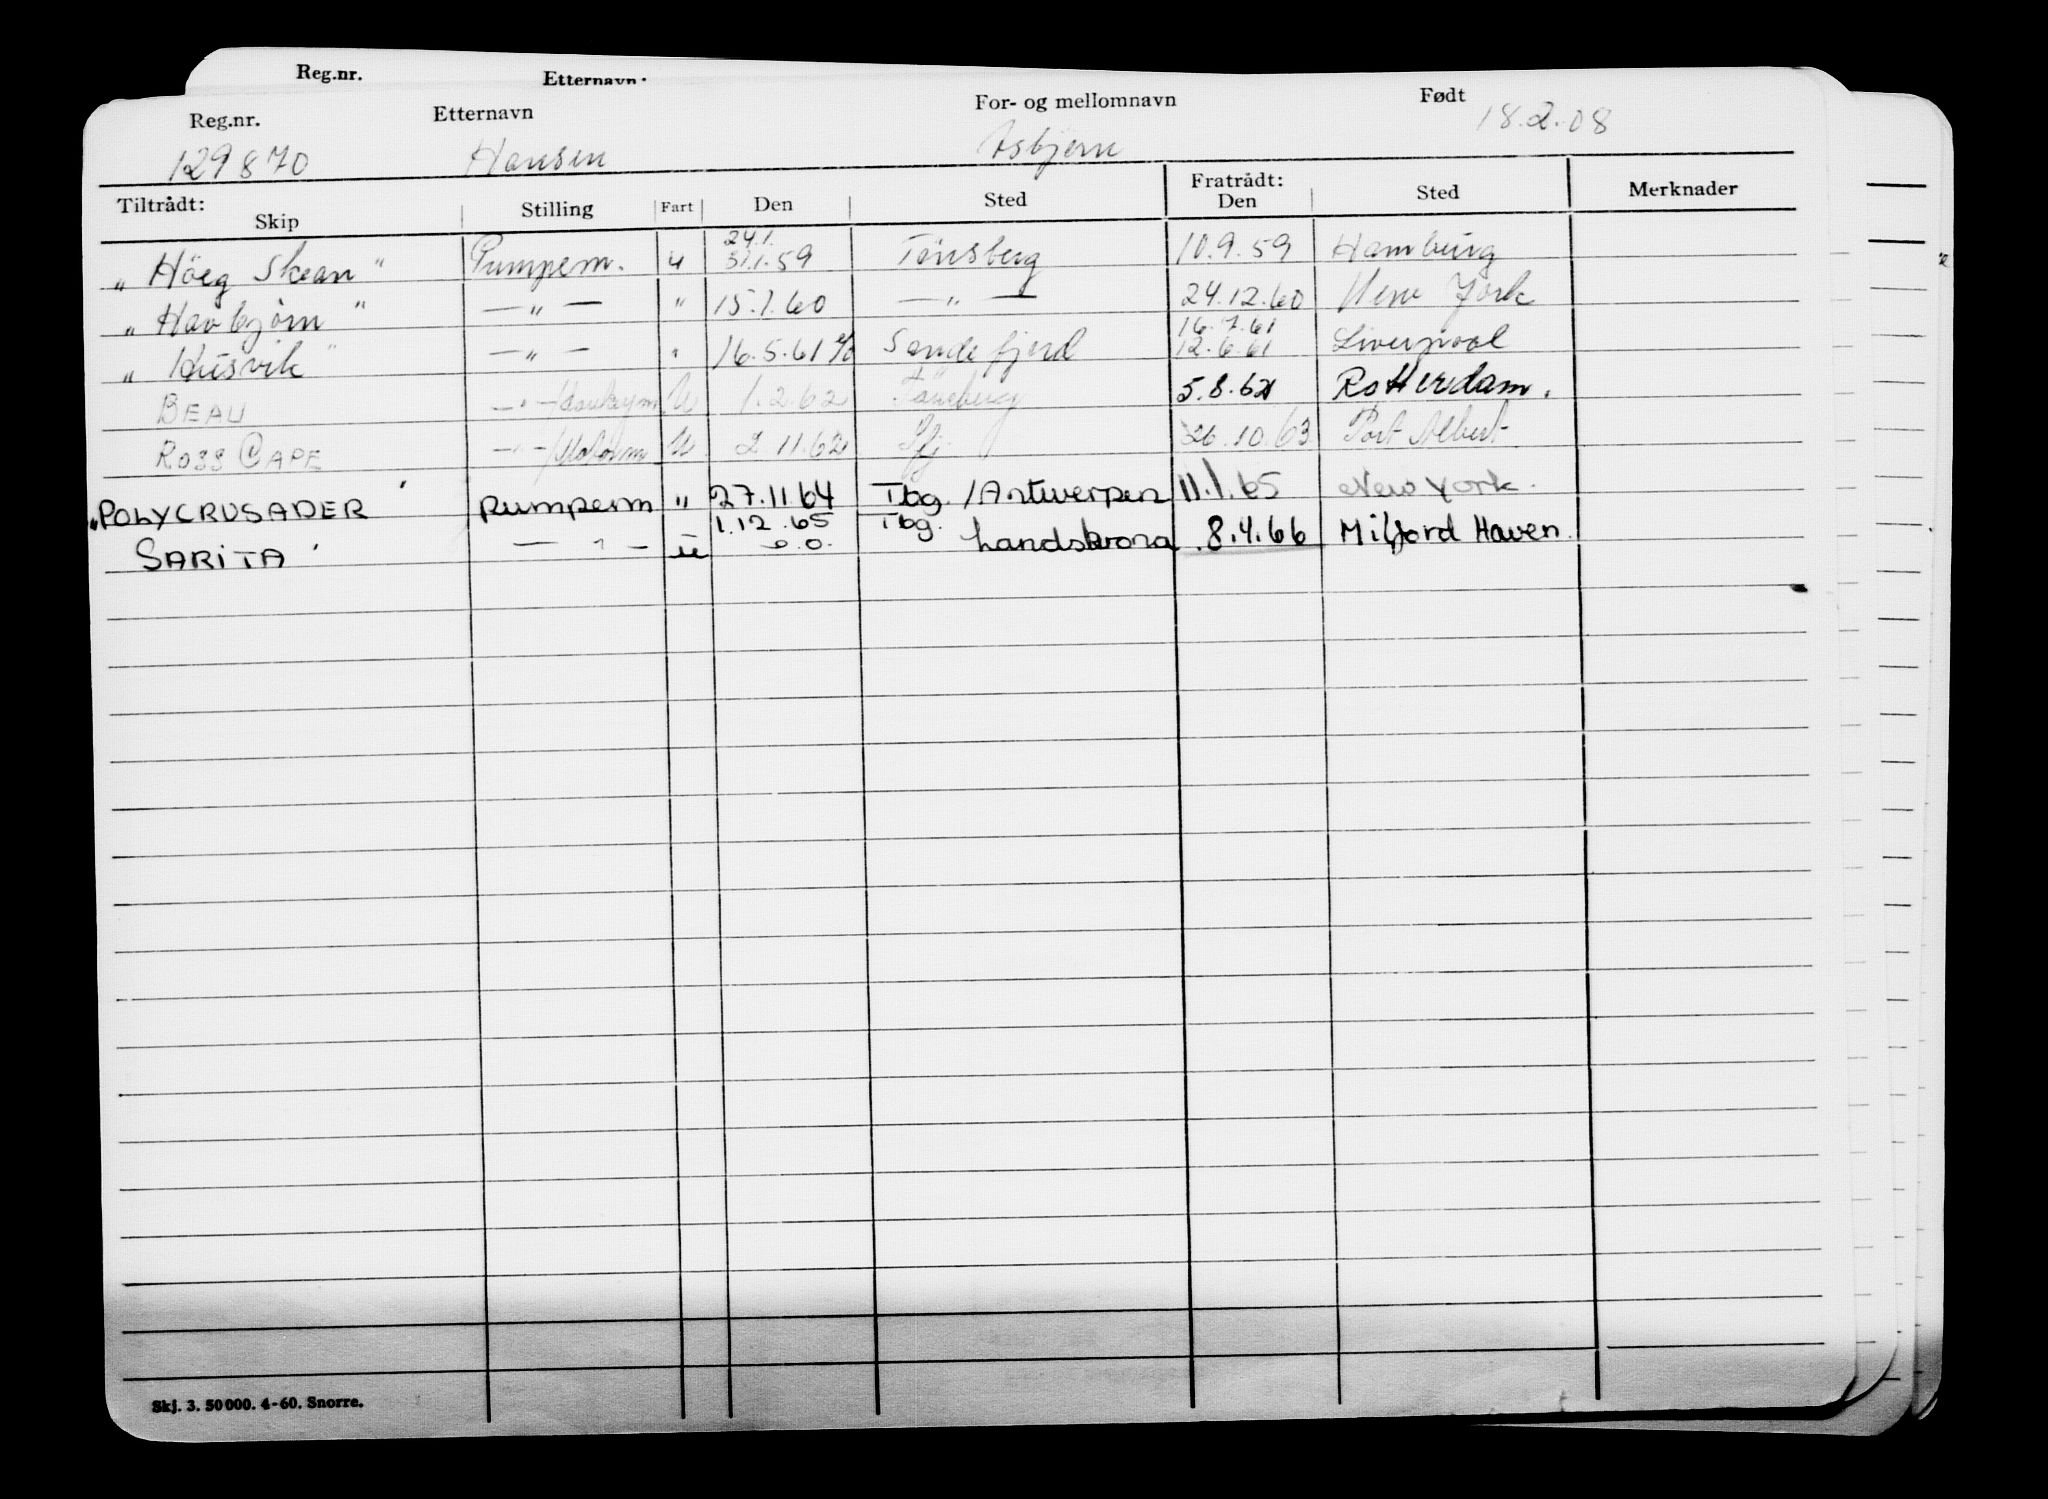 Reg.nr. Etternavn.
Reg.nr. Etternavn For- og mellomnavn Født
129870 Hansen Asbjørn 18.2.08
Tiltrådt: Fratrådt:
Skip Stilling Fart Den Sted Den Sted Merknader
24.1.
„ Höeg Skean " Pumpem. u 31.1.59 Tönsberg 10.9.59 Hamburg
„ Havbjørn " — „ — " 15.1.60 — „ — 24.12.60 New York
16.7.61
„ Husvik " — „ — " 16.5.61 Sandefjord 12.6.61 Liverpool
BEAU — " — / U 1.2.62 Tönsberg 5.8.62 Rotterdam.
ROSS CAPE — " — / Motorm U 2 11.62 Sfj. 26.10.63 Port Albert
„POLYCRUSADER ' pumpem " 27.11.64 Tbg. / Antwerpen 11.1.65 New York.
1.12.65 Tbg.
SARITA ' — " — u Landskrona 8.4.66 Milford Haven.
Skj. 3. 50 000. 4-60. Snorre.